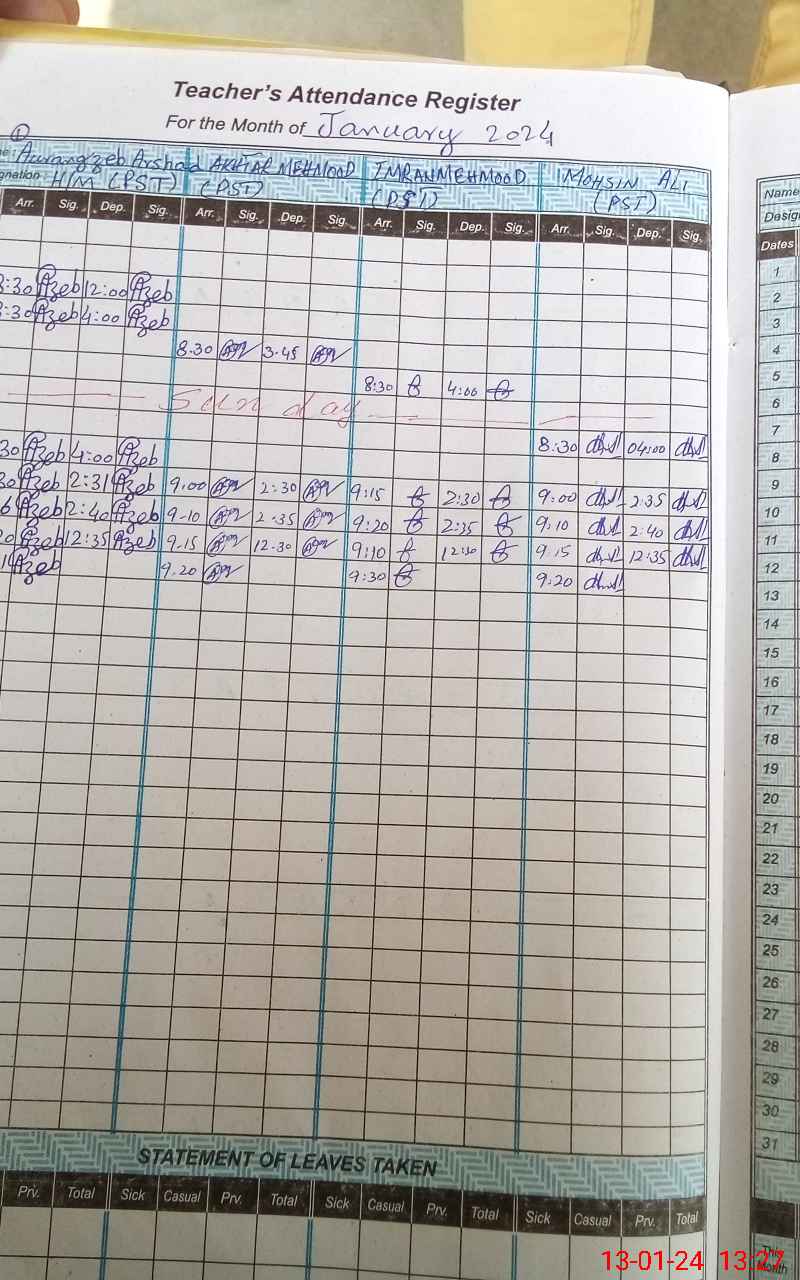 Teacher's Attendance Register
For the Month of January 2024
① Aurangzeb Arshad AKHTAR MEHMOOD IMRAN MEHMOOD MOHSIN ALI
gnation H/M (PST) (PST) (PST) (PST)
Arr. Sig. Dep. Sig. Arr. Sig. Dep. Sig. Arr. Sig. Dep. Sig. Arr. Sig. Dep. Sig.
8:30 Azeb 12:00 Azeb
8:30 Azeb 4:00 Azeb
8.30 3.45
8:30 4:00
Sunday
30 Azeb 4:00 Azeb 8:30 04:00
30 Azeb 2:31 Azeb 9.00 2:30 9:15 2:30 9:00 2:35
6 Azeb 2:40 Azeb 9-10 2-35 9:20 2:35 9:10 2:40
20 Azeb 12:35 Azeb 9.15 12-30 9:10 12:30 9:15 12:35
1 Azeb 9.20 9:30 9:20
STATEMENT OF LEAVES TAKEN
Prv. Total Sick Casual Prv. Total Sick Casual Prv. Total Sick Casual Prv. Total
Name
Desig
Dates
1
2
3
4
5
6
7
8
9
10
11
12
13
14
15
16
17
18
19
20
21
22
23
24
25
26
27
28
29
30
31
This
Month
13-01-24 13:27